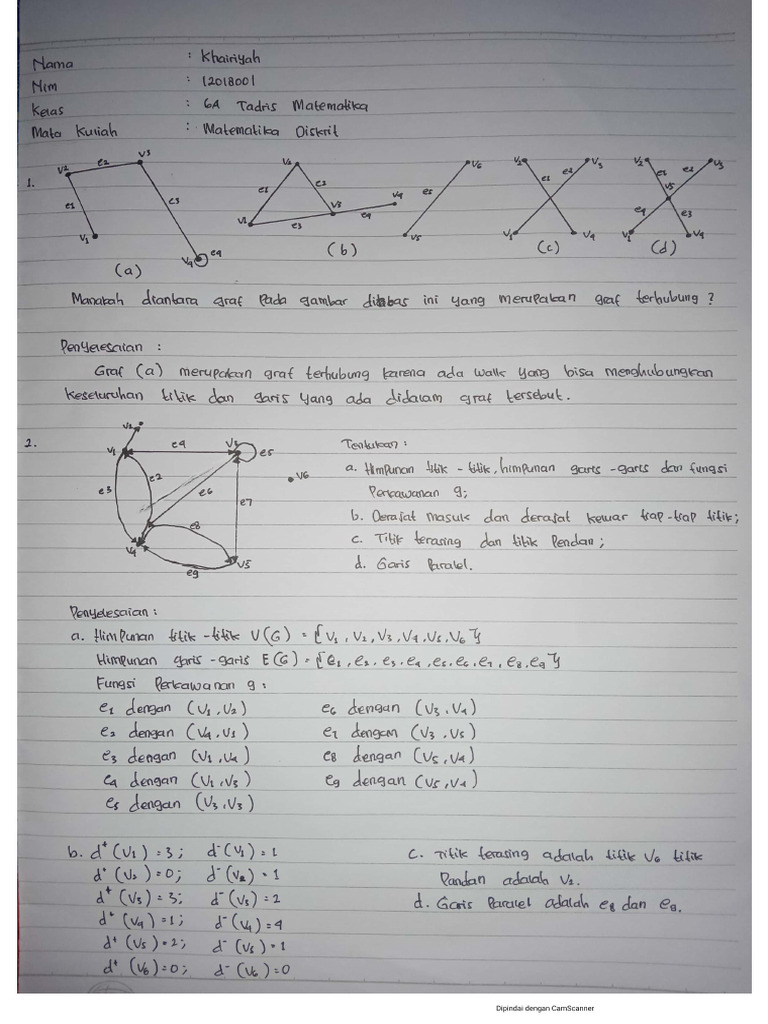 Nama : Khairiyah
Nim : 12018001
Kelas : 6A Tadris Matematika
Mata Kuliah : Matematika Diskrit
1.
v2 e2 v3
e1 e3
v1 v4 e4
(a)
v2
e1 e2
v1 e3 v3 e4 v4
(b)
e5 v6
v5
v2 v3
e1 e2
v1 v4
(c)
v2 v3
e1 e2
v5
e4 e3
v1 v4
(d)
Manakah diantara graf pada gambar diatas ini yang merupakan graf terhubung?
Penyelesaian :
Graf (a) merupakan graf terhubung karena ada walk yang bisa menghubungkan
keseluruhan titik dan garis yang ada didalam graf tersebut.
2.
v2
v1 e4 v3 e5
e3 e2 e6 e7
v6
v4 e8
e9 v5
Tentukan :
a. Himpunan titik-titik, himpunan garis-garis dan fungsi
Perkawanan g;
b. Derajat masuk dan derajat keluar tiap-tiap titik;
c. Titik terasing dan titik Pendan;
d. Garis Paralel.
Penyelesaian :
a. Himpunan titik-titik V(G) = {V1, V2, V3, V4, V5, V6}
Himpunan garis-garis E(G) = {e1, e2, e3, e4, e5, e6, e7, e8, e9}
Fungsi Perkawanan g :
e1 dengan (V1, V2) e6 dengan (V3, V4)
e2 dengan (V4, V1) e7 dengan (V3, V5)
e3 dengan (V1, V4) e8 dengan (V5, V4)
e4 dengan (V1, V3) e9 dengan (V5, V4)
e5 dengan (V3, V3)
b. d+ (V1) = 3; d- (V1) = 1
d+ (V2) = 0; d- (V2) = 1
d+ (V3) = 3; d- (V3) = 2
d+ (V4) = 1; d- (V4) = 4
d+ (V5) = 2; d- (V5) = 1
d+ (V6) = 0; d- (V6) = 0
c. Titik terasing adalah titik V6 titik
Pandan adalah V2.
d. Garis Paralel adalah e8 dan e9.
Dipindai dengan CamScanner